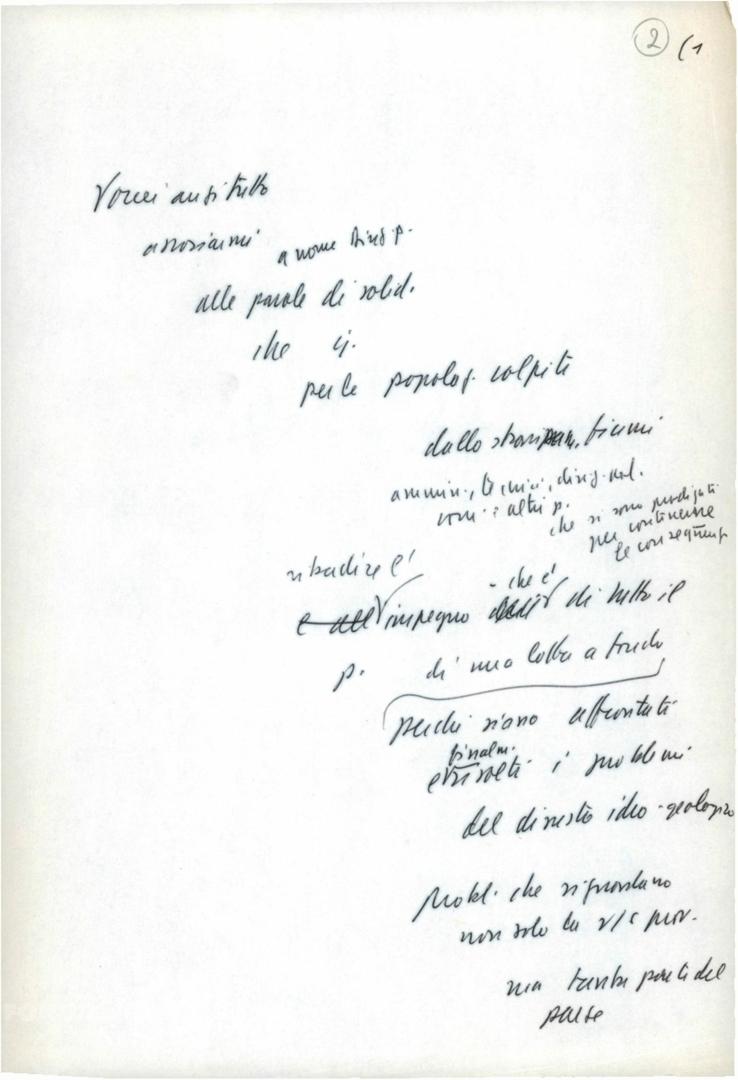 2 (1
Vorrei anzitutto
associarmi a nome
alle parole di solid.
che
per le popolaz. colpite
dallo fiumi
ammin., tecnici,
altri p.
che si sono prodigati
per contenerne
le conseguenz
ribadire l'
e all impegno - che è di tutto il
p. di una lotta a fondo
perché siano affrontati
finalm.
e risolti i problemi
del dissesto idro-geologico
Probl. che riguardano
non solo la v/s prov.
ma tanta parte del
paese